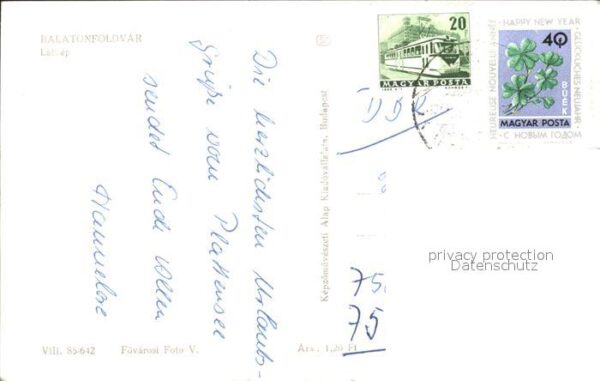 BALATONFÖLDVÁR
Látkép
Die herzlichsten Urlaubs-
grüße vom Plattensee
sendet Euch allen
Hannelore
Vill. 85/642 Fővárosi Foto V. Ára: 1,20 Ft
Képzőművészeti Alap Kiadóvállalata, Budapest
20
MAGYAR POSTA
HAPPY NEW YEAR
HEUREUSE NOUVELLE ANNÉE
GLÜCKLICHES NEUJAHR
40
BUÉK
MAGYAR POSTA
С НОВЫМ ГОДОМ
DDR
privacy protection
Datenschutz
75.
75